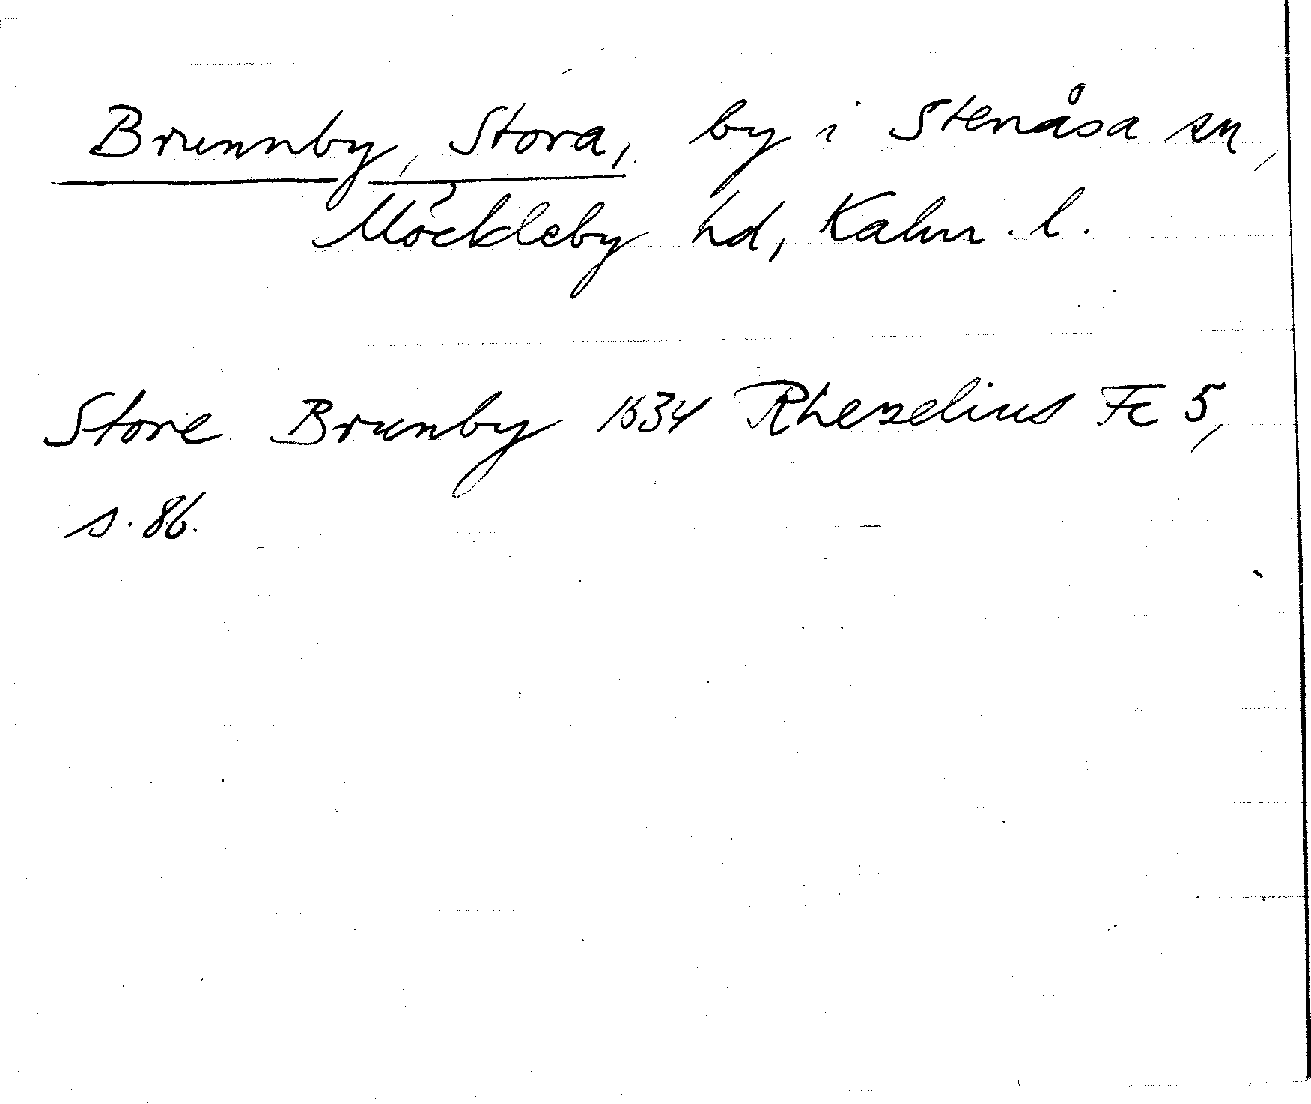 Brunnby, Stora, by i Stenåsa sn,
Möckleby hd, Kalm. l.
Store Brunby 1634 Rhezelius Fc 5,
s. 86.